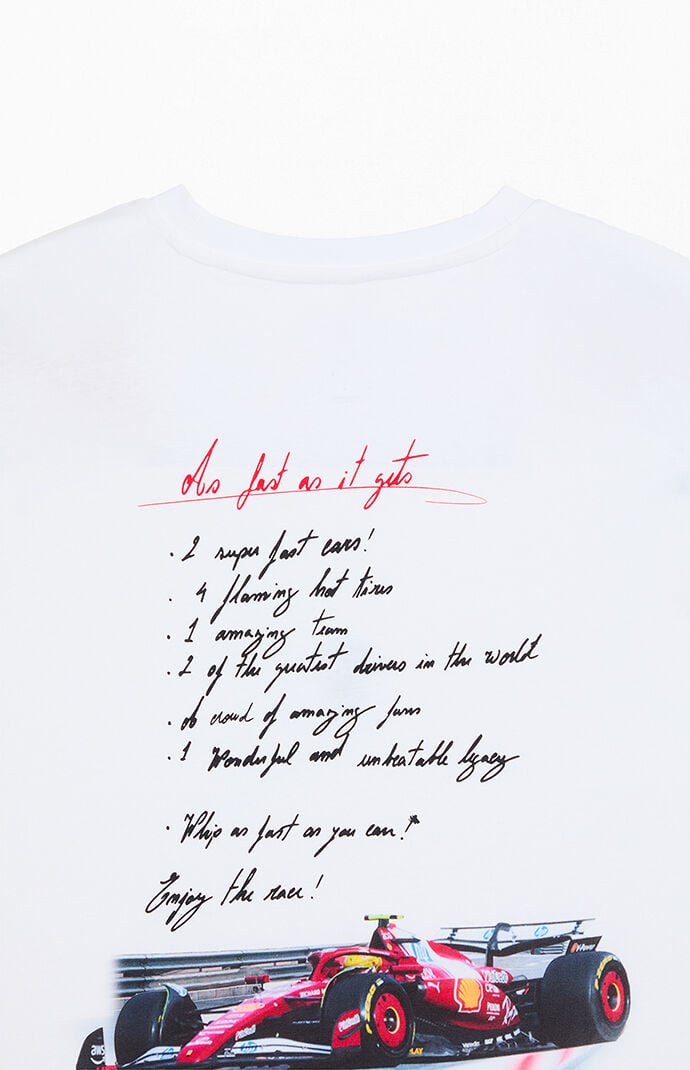 As fast as it gets
. 2 super fast cars!
. 4 flaming hot tires
. 1 amazing team
. 2 of the greatest drivers in the world
. A crowd of amazing fans
. 1 Wonderful and unbeatable legacy
. Whip as fast as you can!
Enjoy the race!
hp
V-Power
RICHARD
hp
aws
PLAY